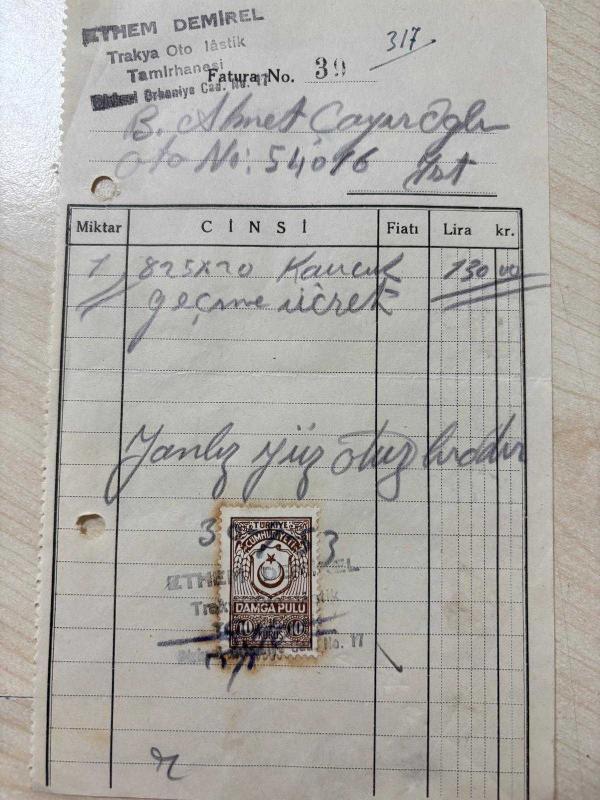 ETHEM DEMİREL
Trakya Oto lâstik
Tamirhanesi
Orhaniye Cad. No. 17
Fatura No. 39
317
B. Ahmet Çayıroğlu
Oto No: 54016 İst
Miktar CİNSİ Fiatı Lira kr.
1 825x20 Kauçuk 130 00
geçme ücreti
Yanlız yüz otuz liradır
TÜRKİYE
CUMHURİYETİ
ETHEM DEMİREL
DAMGA PULU
10 KURUŞ 10
No. 17